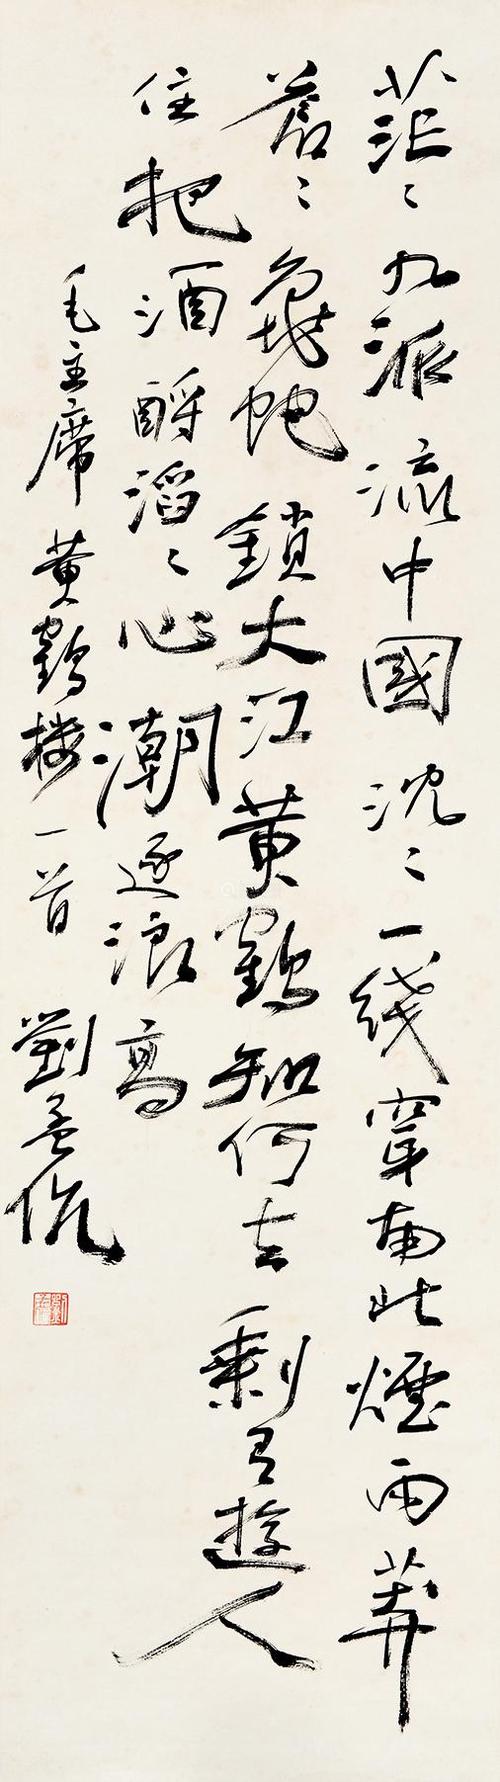 茫〻九派流中國沈〻一线穿南北煙雨莽
蒼〻龜蛇鎖大江黄鶴知何去剩有遊人
住把酒酹滔〻心潮逐浪高
毛主席黄鶴楼一首 劉孟伉